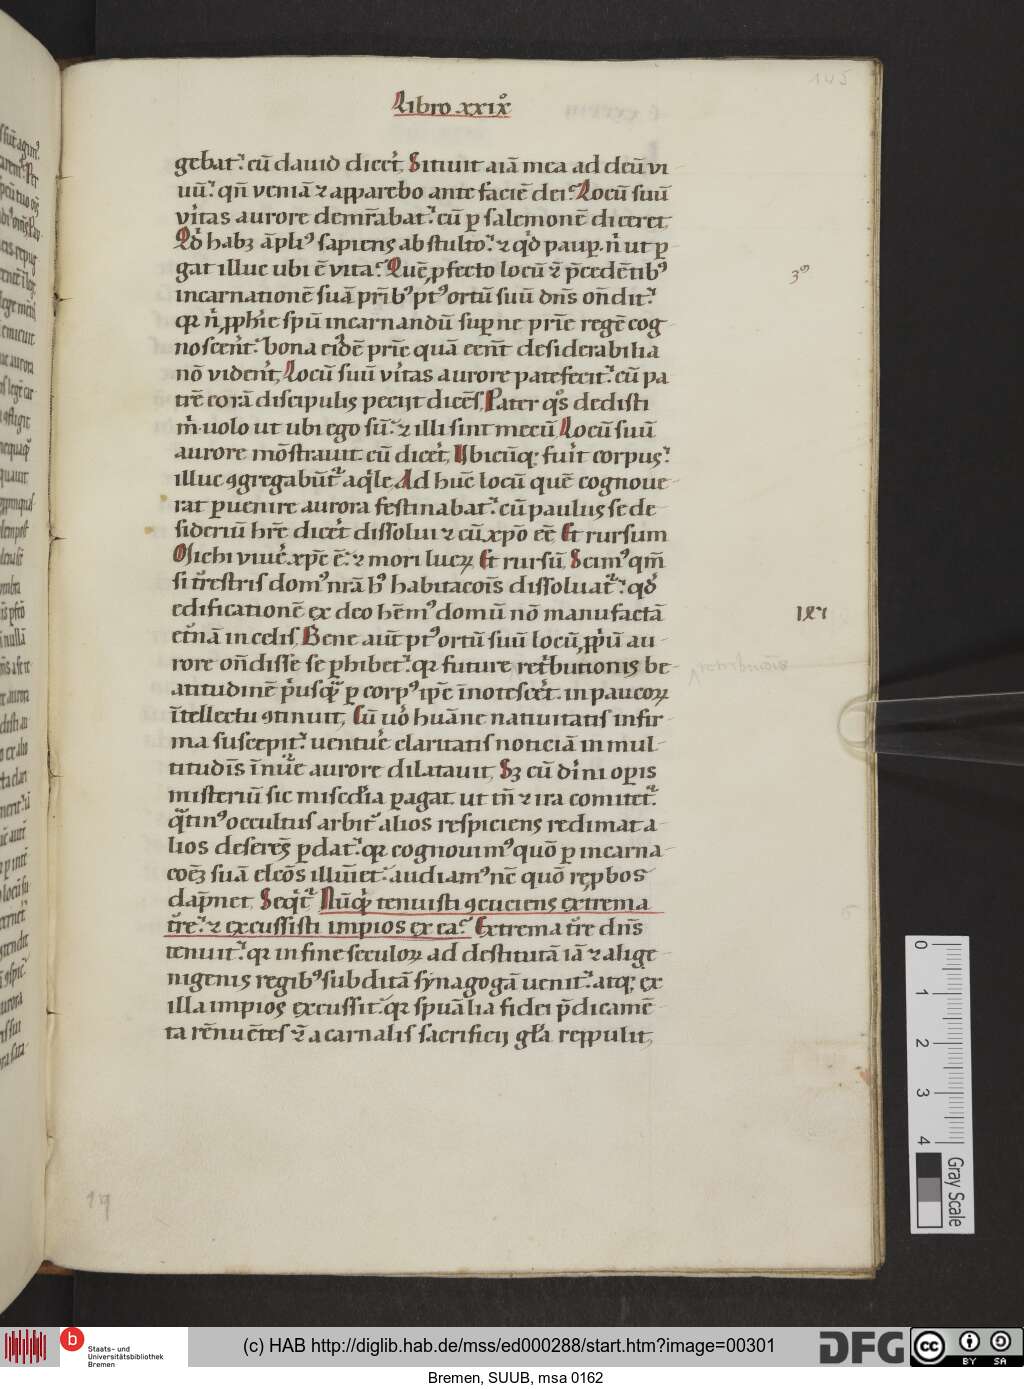 145
Libro xxixͦ
gebat᷑. cū dauid dic̄et᷑. Sitiuit aīā mea ad deū vi
uū. qn̄ veniā ⁊ apparebo ante faciē dei. Locū suū
vītas aurore demr̄abat. cū ꝑ salemonē diceret
Qd̓ habꝫ āpliꝰ sapiens ab stulto. ⁊ qd̓ pauꝑ. n̓ ut ꝑ
gat illuc ubi ē vita. Quē ꝓfecto locū ⁊ p̄cedētibꝰ
incarnationē suā pr̄ibꝰ ptꝰ ortū suū dn̄s on̄dit.
qꝛ n̓ ꝓphīe spū incarnandū suꝑne prīe regē cog
noscen̄t. bona eid̄ē prīe quā een̄t desiderabilia
nō viden̄t, Locū suū vītas aurore patefecit. cū pa
trē corā discipulis pecijt dicēs, Pater qͦs dedisti
m̓. uolo ut ubi ego sū. ⁊ illi sint mecū, Locū suū
aurore mōstrauit cū dic̄et, Ubicūqꝫ fuīt corpus.
illuc ꝯgregabūt᷑ aqͥle, Ad huc̄ locū quē cognoue
rat ꝑuenire aurora festinabat. cū paulus se de
sideriū hr̄e dic̄et dissolui ⁊ cū xp̄o eē Et rursum
Michi viuē xp̄c ē. ⁊ mori lucꝝ Et rursū, Scimꝰ qm̄
si tr̄estris domꝰ nr̄a hꝰ habitacoīs dissoluat᷑. qd̓
edificationē ex deo hēmꝰ domū nō manufactā
et̄nā in celis, Bene aut̄ ptꝰ ortū suū locū ꝓpͥū au
rore on̄disse se ꝑhibet. qꝛ future retͥbutionis be
atitudinē pͥusqᷓ ꝑ corpꝰ ip̄e īnotesc̄et. in paucoꝝ
ītellectu ꝯtinuit, Cū uo᷑ huāne natiuitatis infir
ma suscepit. uentuē claritatis noticiā in mul
titudīs īnūc̄ aurore dilatauit, Sꝫ cū diīni oꝑis
misteriū sic mis̄cdīa ꝑagat. ut tn̄ ⁊ ira comitet᷑.
qᷓtinꝰ occultus arbit᷑ alios respiciens redimat a
lios deserēs ꝑdat. qꝛ cognouimꝰ quō ꝑ incarna
coēꝫ suā elcōs illuīet. audiamꝰ nc̄ quō rep̱bos
dap̄net, Seqͥt᷑ Nūqͥd tenuisti ꝯcuciens extrema
tr̄e. ⁊ excussisti impios ex ea. Extrema tr̄e dn̄s
tenuit. qꝛ in fine seculoꝝ ad destitutā iā ⁊ alige
nigenis regibꝰ subditā synagogā uenit. atqꝫ ex
illa impios excussit. qꝛ spuālia fidei p̄dicamē
ta rēnuētes ⁊ a carnalis sacrificij glīa reppulit,
3ᵐ
retribucōīs
14
0 1 2 3 4
Gray Scale
b Staats- und
Universitätsbibliothek
Bremen
(c) HAB http://diglib.hab.de/mss/ed000288/start.htm?image=00301
DFG
cc BY SA
Bremen, SUUB, msa 0162